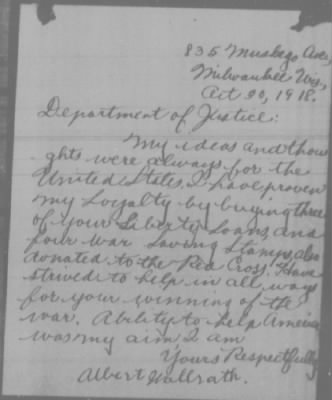 835 Muskego Ave,
Milwaukee Wis,
Oct 20, 1918.
Department of Justice:
My ideas and thou
ghts were always for the
United States. I have proven
my Loyalty by buying three
of your Liberty Loans, and
four War Saving Stamps, also
donated to the Red Cross. Have
strived to help in all ways
for your winning of the
war. Ability to help America
was my aim I am
Yours Respectfully
Albert Wallrath.